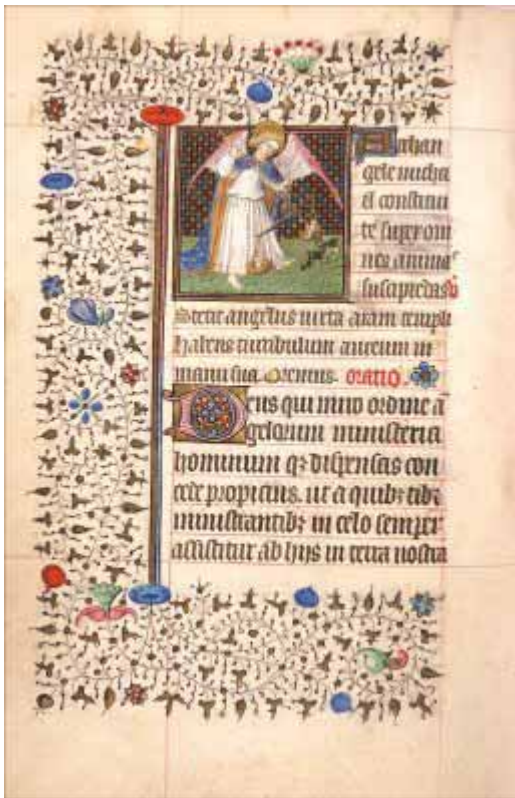 Archan
gele micha
el constitui
te super om
nes animas
suscipiedas v
Stetit angelus iuxta aram templi
habens turibulum aureum in
manu sua Oremus. oratio.
Deus qui miro ordine a
gelorum ministeria
hominum qz dispensas con
cede propicius. ut a quibz tibi
ministrantibz in celo semper
assistitur ab hijs in terra nostra